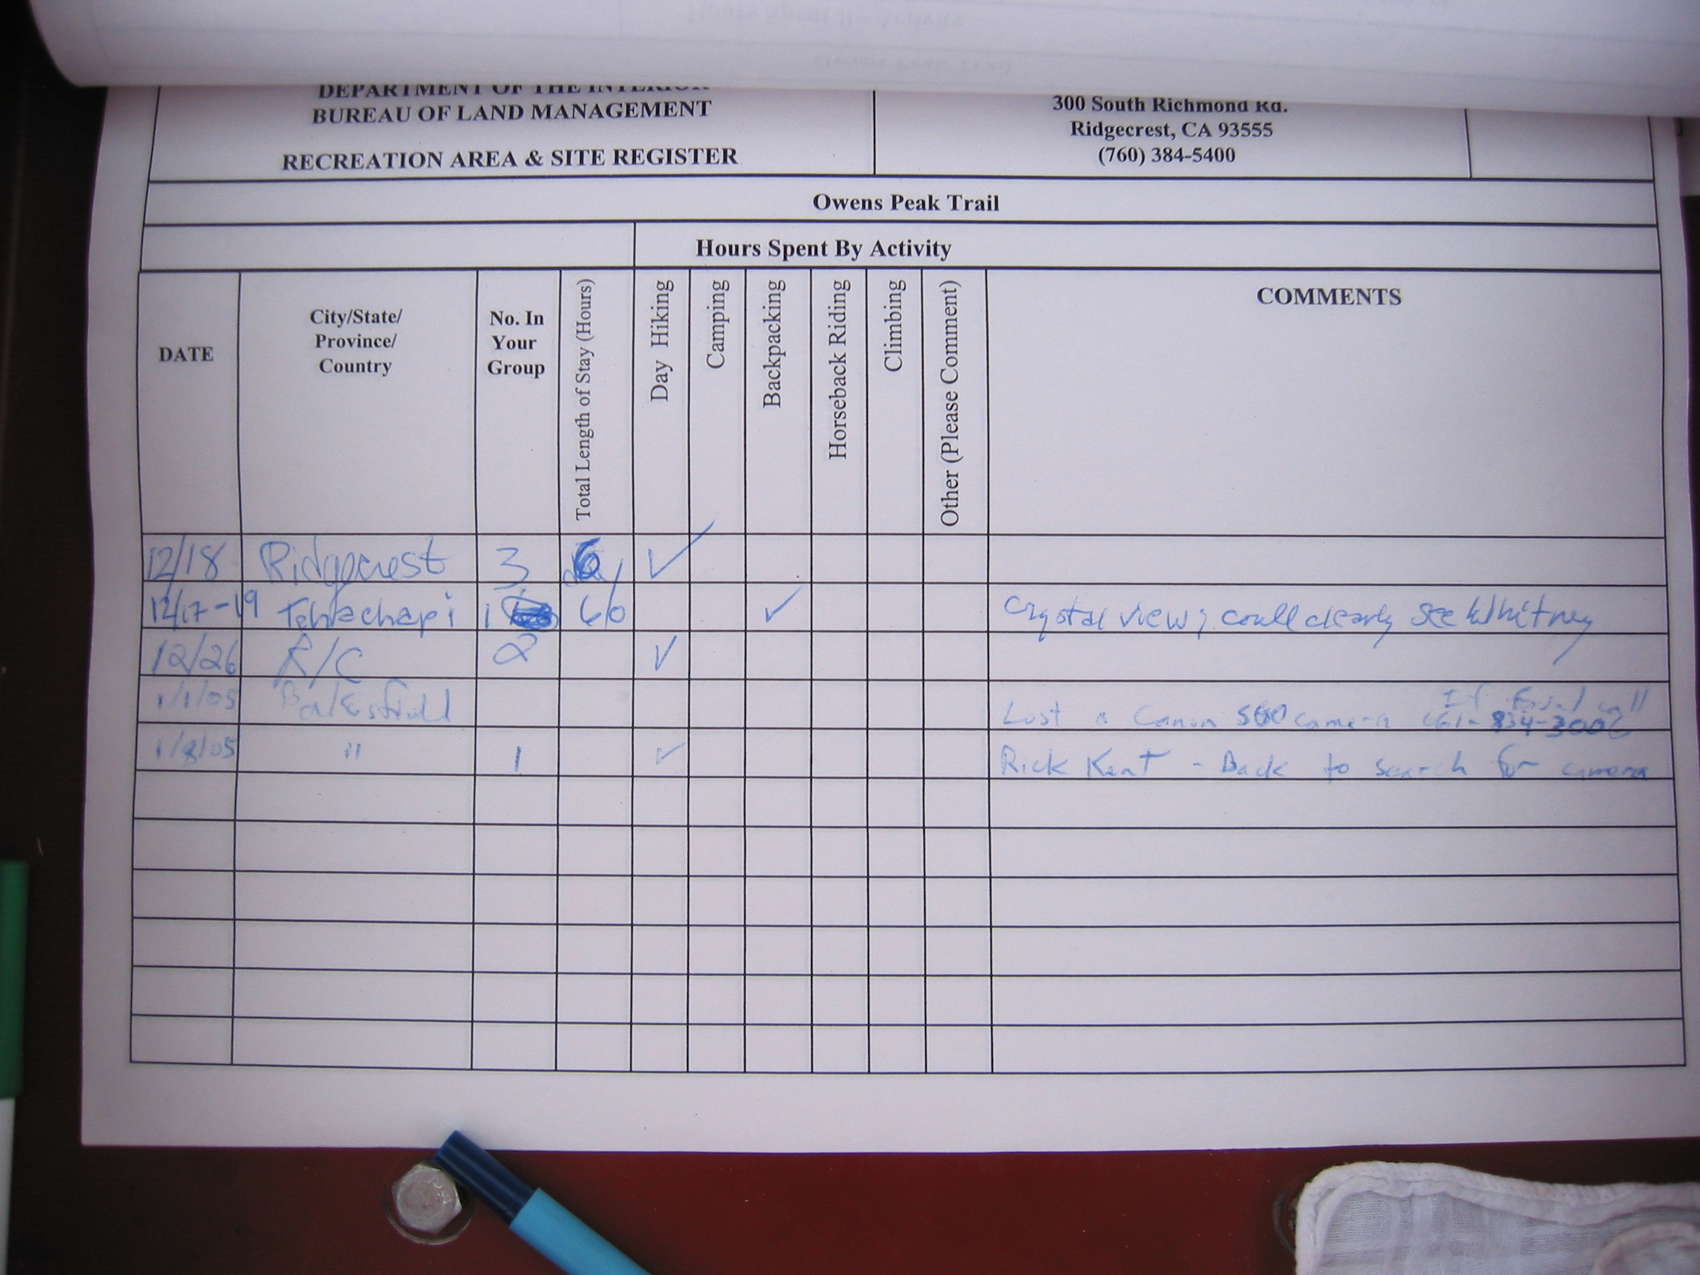 DEPARTMENT OF THE INTERIOR
BUREAU OF LAND MANAGEMENT
RECREATION AREA & SITE REGISTER
300 South Richmond Rd.
Ridgecrest, CA 93555
(760) 384-5400
Owens Peak Trail
Hours Spent By Activity
DATE
City/State/
Province/
Country
No. In
Your
Group
Total Length of Stay (Hours)
Day Hiking
Camping
Backpacking
Horseback Riding
Climbing
Other (Please Comment)
COMMENTS
12/18 Ridgecrest 3 6 ✓
12/17-19 Tehachapi 1 60 ✓ Crystal view; could clearly see Whitney
12/26 R/C 2 ✓
1/1/05 Bakersfield Lost a Canon S60 camera If found call 661-834-3006
1/8/05 " 1 ✓ Rick Kent - Back to search for camera